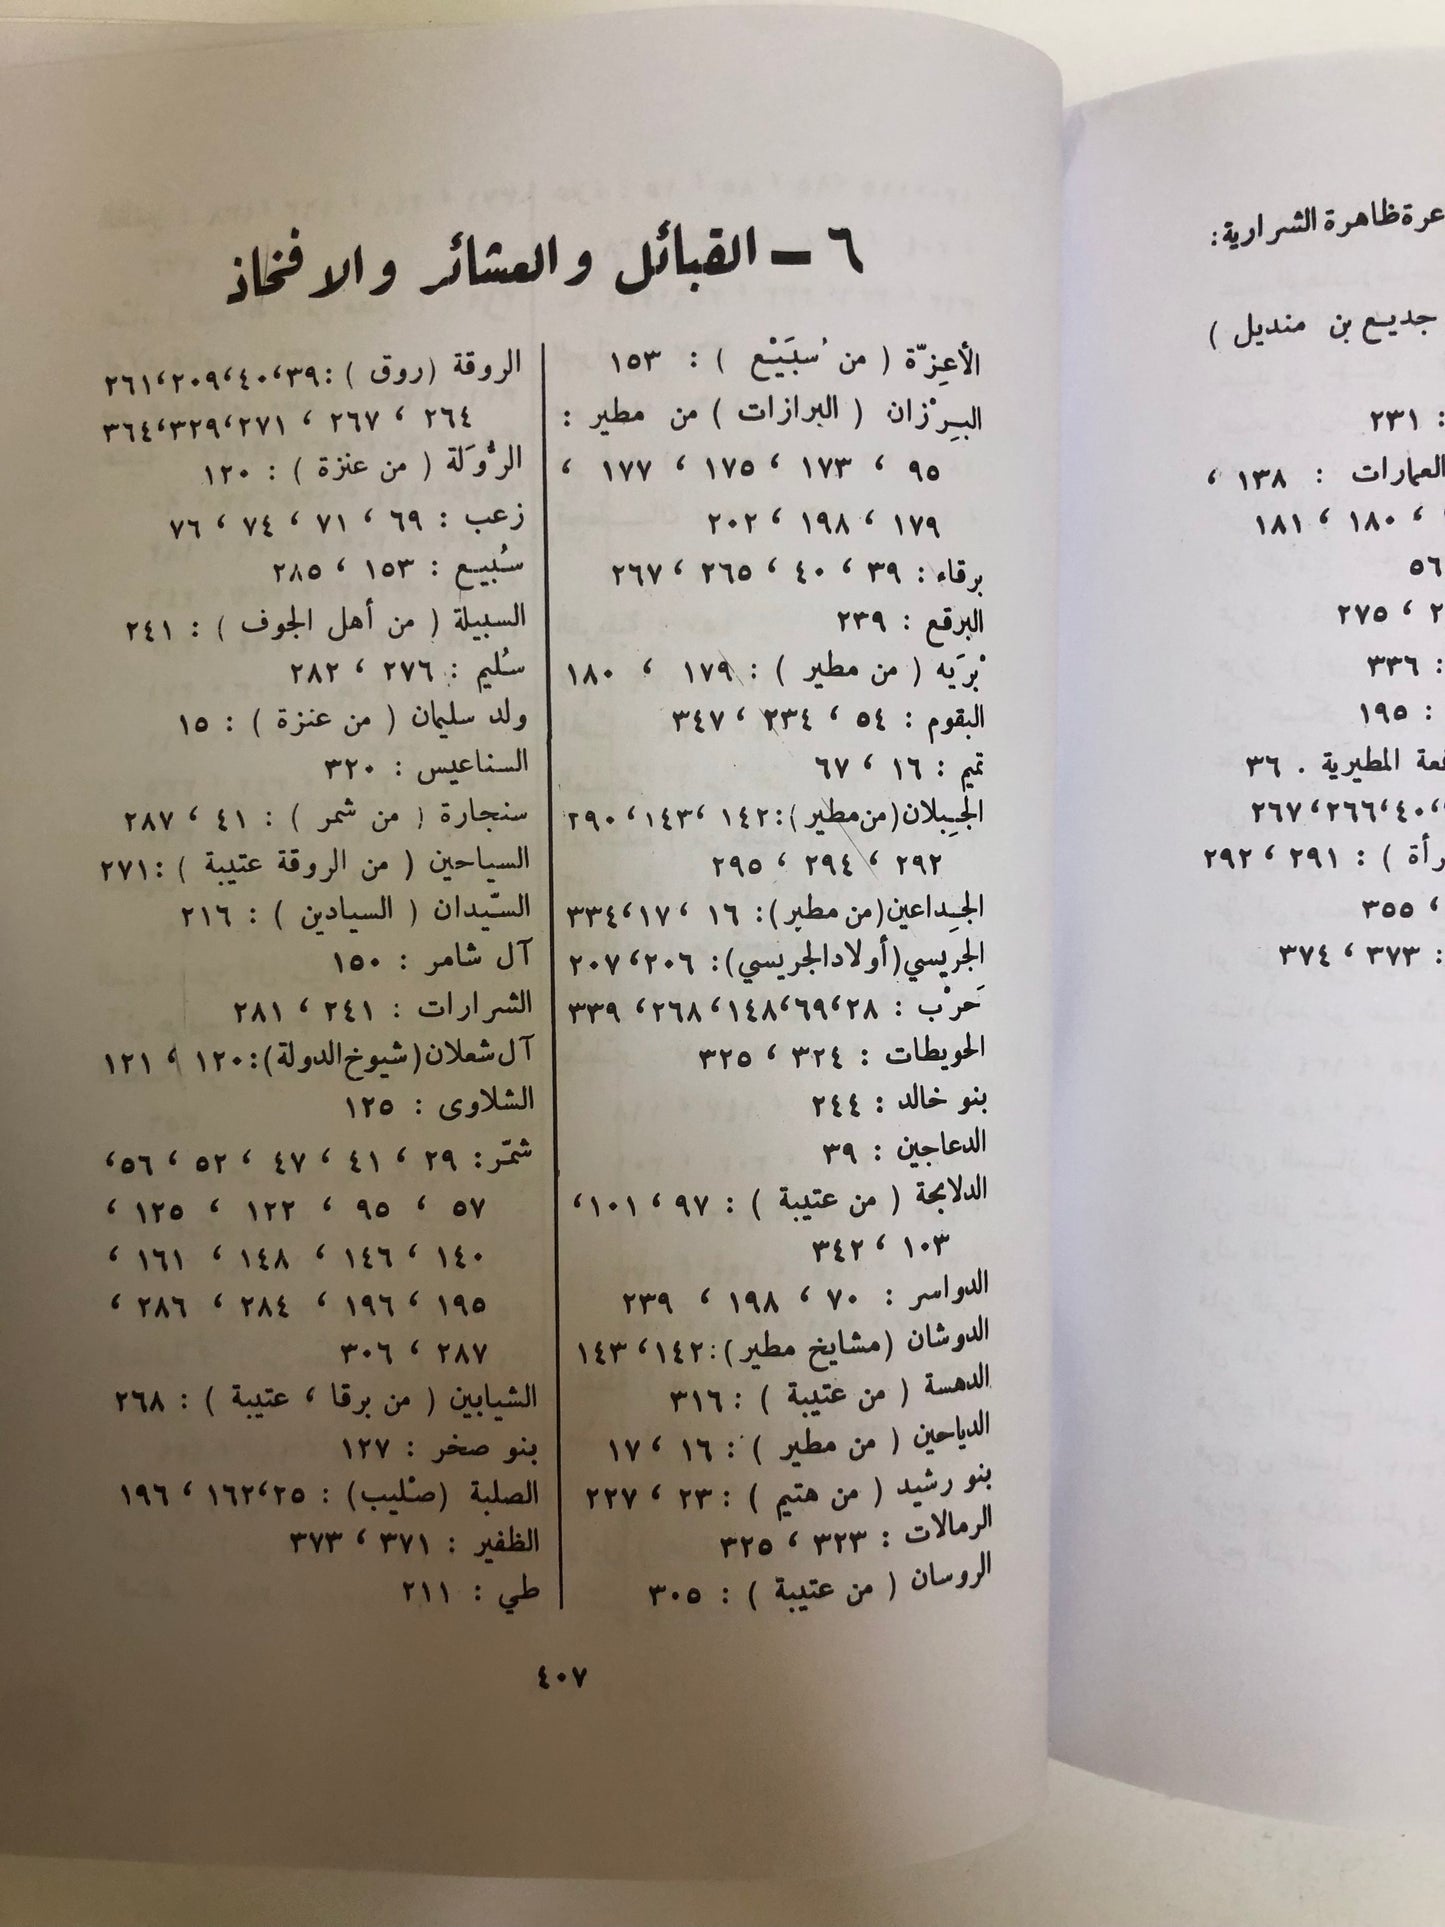 ٦ - القبائل والعشائر والافخاذ
الأعِزّة ( من سُبَيْع ) : ١٥٣
البِرْزان ( البرازات ) من مطير :
٩٥ ، ١٧٣ ، ١٧٥ ، ١٧٧ ،
١٧٩ ، ١٩٨ ، ٢٠٢
برقاء : ٣٩ ، ٤٠ ، ٢٦٥ ، ٢٦٧
البرقع : ٢٣٩
بْرَيه ( من مطير ) : ١٧٩ ، ١٨٠
البقوم : ٥٤ ، ٢٣٤ ، ٣٤٧
تميم : ١٦ ، ٦٧
الجِبلان (من مطير) : ١٤٢ ، ١٤٣ ، ٢٩٠
٢٩٢ ، ٢٩٤ ، ٢٩٥
الجِداعين (من مطير) : ١٦ ، ١٧ ، ٣٣٤
الجريسي (أولاد الجريسي) : ٢٠٦ ، ٢٠٧
حَرْب : ٢٨ ، ٦٩ ، ١٤٨ ، ٢٦٨ ، ٣٣٩
الحويطات : ٣٢٤ ، ٣٢٥
بنو خالد : ٢٤٤
الدعاجين : ٣٩
الدلابحة ( من عتيبة ) : ٩٧ ، ١٠١ ،
١٠٣ ، ٣٤٢
الدواسر : ٧٠ ، ١٩٨ ، ٢٣٩
الدوشان (مشايخ مطير) : ١٤٢ ، ١٤٣
الدهسة ( من عتيبة ) : ٣١٦
الدياحين ( من مطير ) : ١٦ ، ١٧
بنو رشيد ( من هتيم ) : ٢٣ ، ٢٢٧
الرمالات : ٣٢٣ ، ٣٢٥
الروسان ( من عتيبة ) : ٣٠٥
الروقة (روق ) : ٣٩ ، ٤٠ ، ٢٠٩ ، ٢٦١
٢٦٤ ، ٢٦٧ ، ٢٧١ ، ٣٢٩ ، ٣٦٤
الرُّوَلة ( من عنزة ) : ١٢٠
زعب : ٦٩ ، ٧١ ، ٧٤ ، ٧٦
سُبيع : ١٥٣ ، ٢٨٥
السبيلة ( من أهل الجوف ) : ٢٤١
سُليم : ٢٧٦ ، ٢٨٢
ولد سليمان ( من عنزة ) : ١٥
السناعيس : ٣٢٠
سنجارة ( من شمر ) : ٤١ ، ٢٨٧
السياحين ( من الروقة عتيبة ) : ٢٧١
السّيدان ( السيادين ) : ٢١٦
آل شامر : ١٥٠
الشرارات : ٢٤١ ، ٢٨١
آل شعلان (شيوخ الدولة) : ١٢٠ ، ١٢١
الشلاوى : ١٢٥
شمّر : ٢٩ ، ٤١ ، ٤٧ ، ٥٢ ، ٥٦ ،
٥٧ ، ٩٥ ، ١٢٢ ، ١٢٥ ،
١٤٠ ، ١٤٦ ، ١٤٨ ، ١٦١ ،
١٩٥ ، ١٩٦ ، ٢٨٤ ، ٢٨٦ ،
٢٨٧ ، ٣٠٦
الشيابين ( من برقا ، عتيبة ) : ٢٦٨
بنو صخر : ١٢٧
الصلبة (صْليب) : ٢٥ ، ١٦٢ ، ١٩٦
الظفير : ٣٧١ ، ٣٧٣
طي : ٢١١
٤٠٧
ظاهرة الشرارية :
جديع بن منديل )
: ٢٣١
العمارات : ١٣٨ ،
، ١٨٠ ، ١٨١
٥٦
، ٢٧٥
: ٣٣٦
: ١٩٥
المطيرية . ٣٦
٤٠ ، ٢٦٦ ، ٢٦٧
) : ٢٩١ ، ٢٩٢
، ٣٥٥
: ٣٧٣ ، ٣٧٤